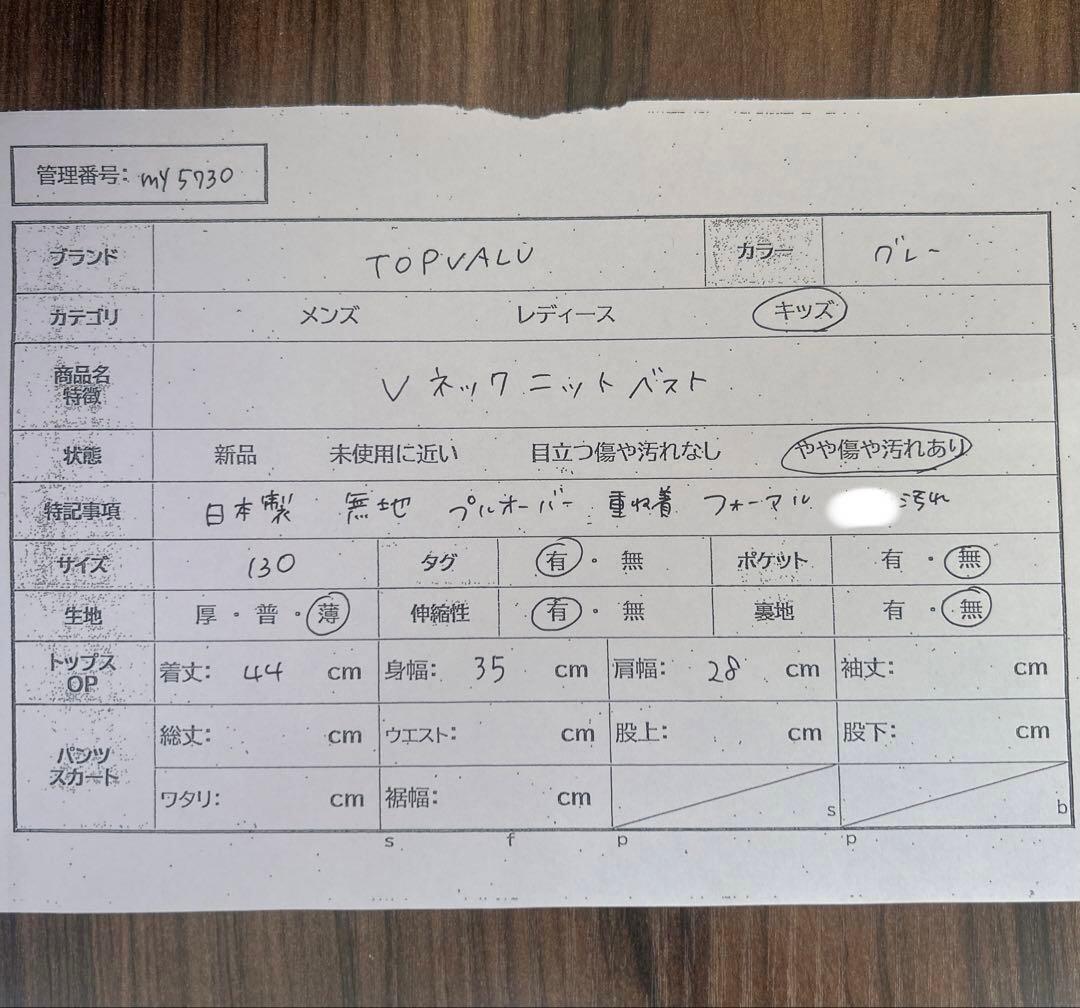 管理番号: my5730
ブランド TOPVALU カラー グレー
カテゴリ メンズ レディース キッズ
商品名 特徴 Vネックニットベスト
状態 新品 未使用に近い 目立つ傷や汚れなし やや傷や汚れあり
特記事項 日本製 無地 プルオーバー 重ね着 フォーマル 汚れ
サイズ 130 タグ 有・無 ポケット 有・無
生地 厚・普・薄 伸縮性 有・無 裏地 有・無
トップス OP 着丈: 44 cm 身幅: 35 cm 肩幅: 28 cm 袖丈: cm
パンツ スカート 総丈: cm ウエスト: cm 股上: cm 股下: cm
ワタリ: cm 裾幅: cm s b
s f p p